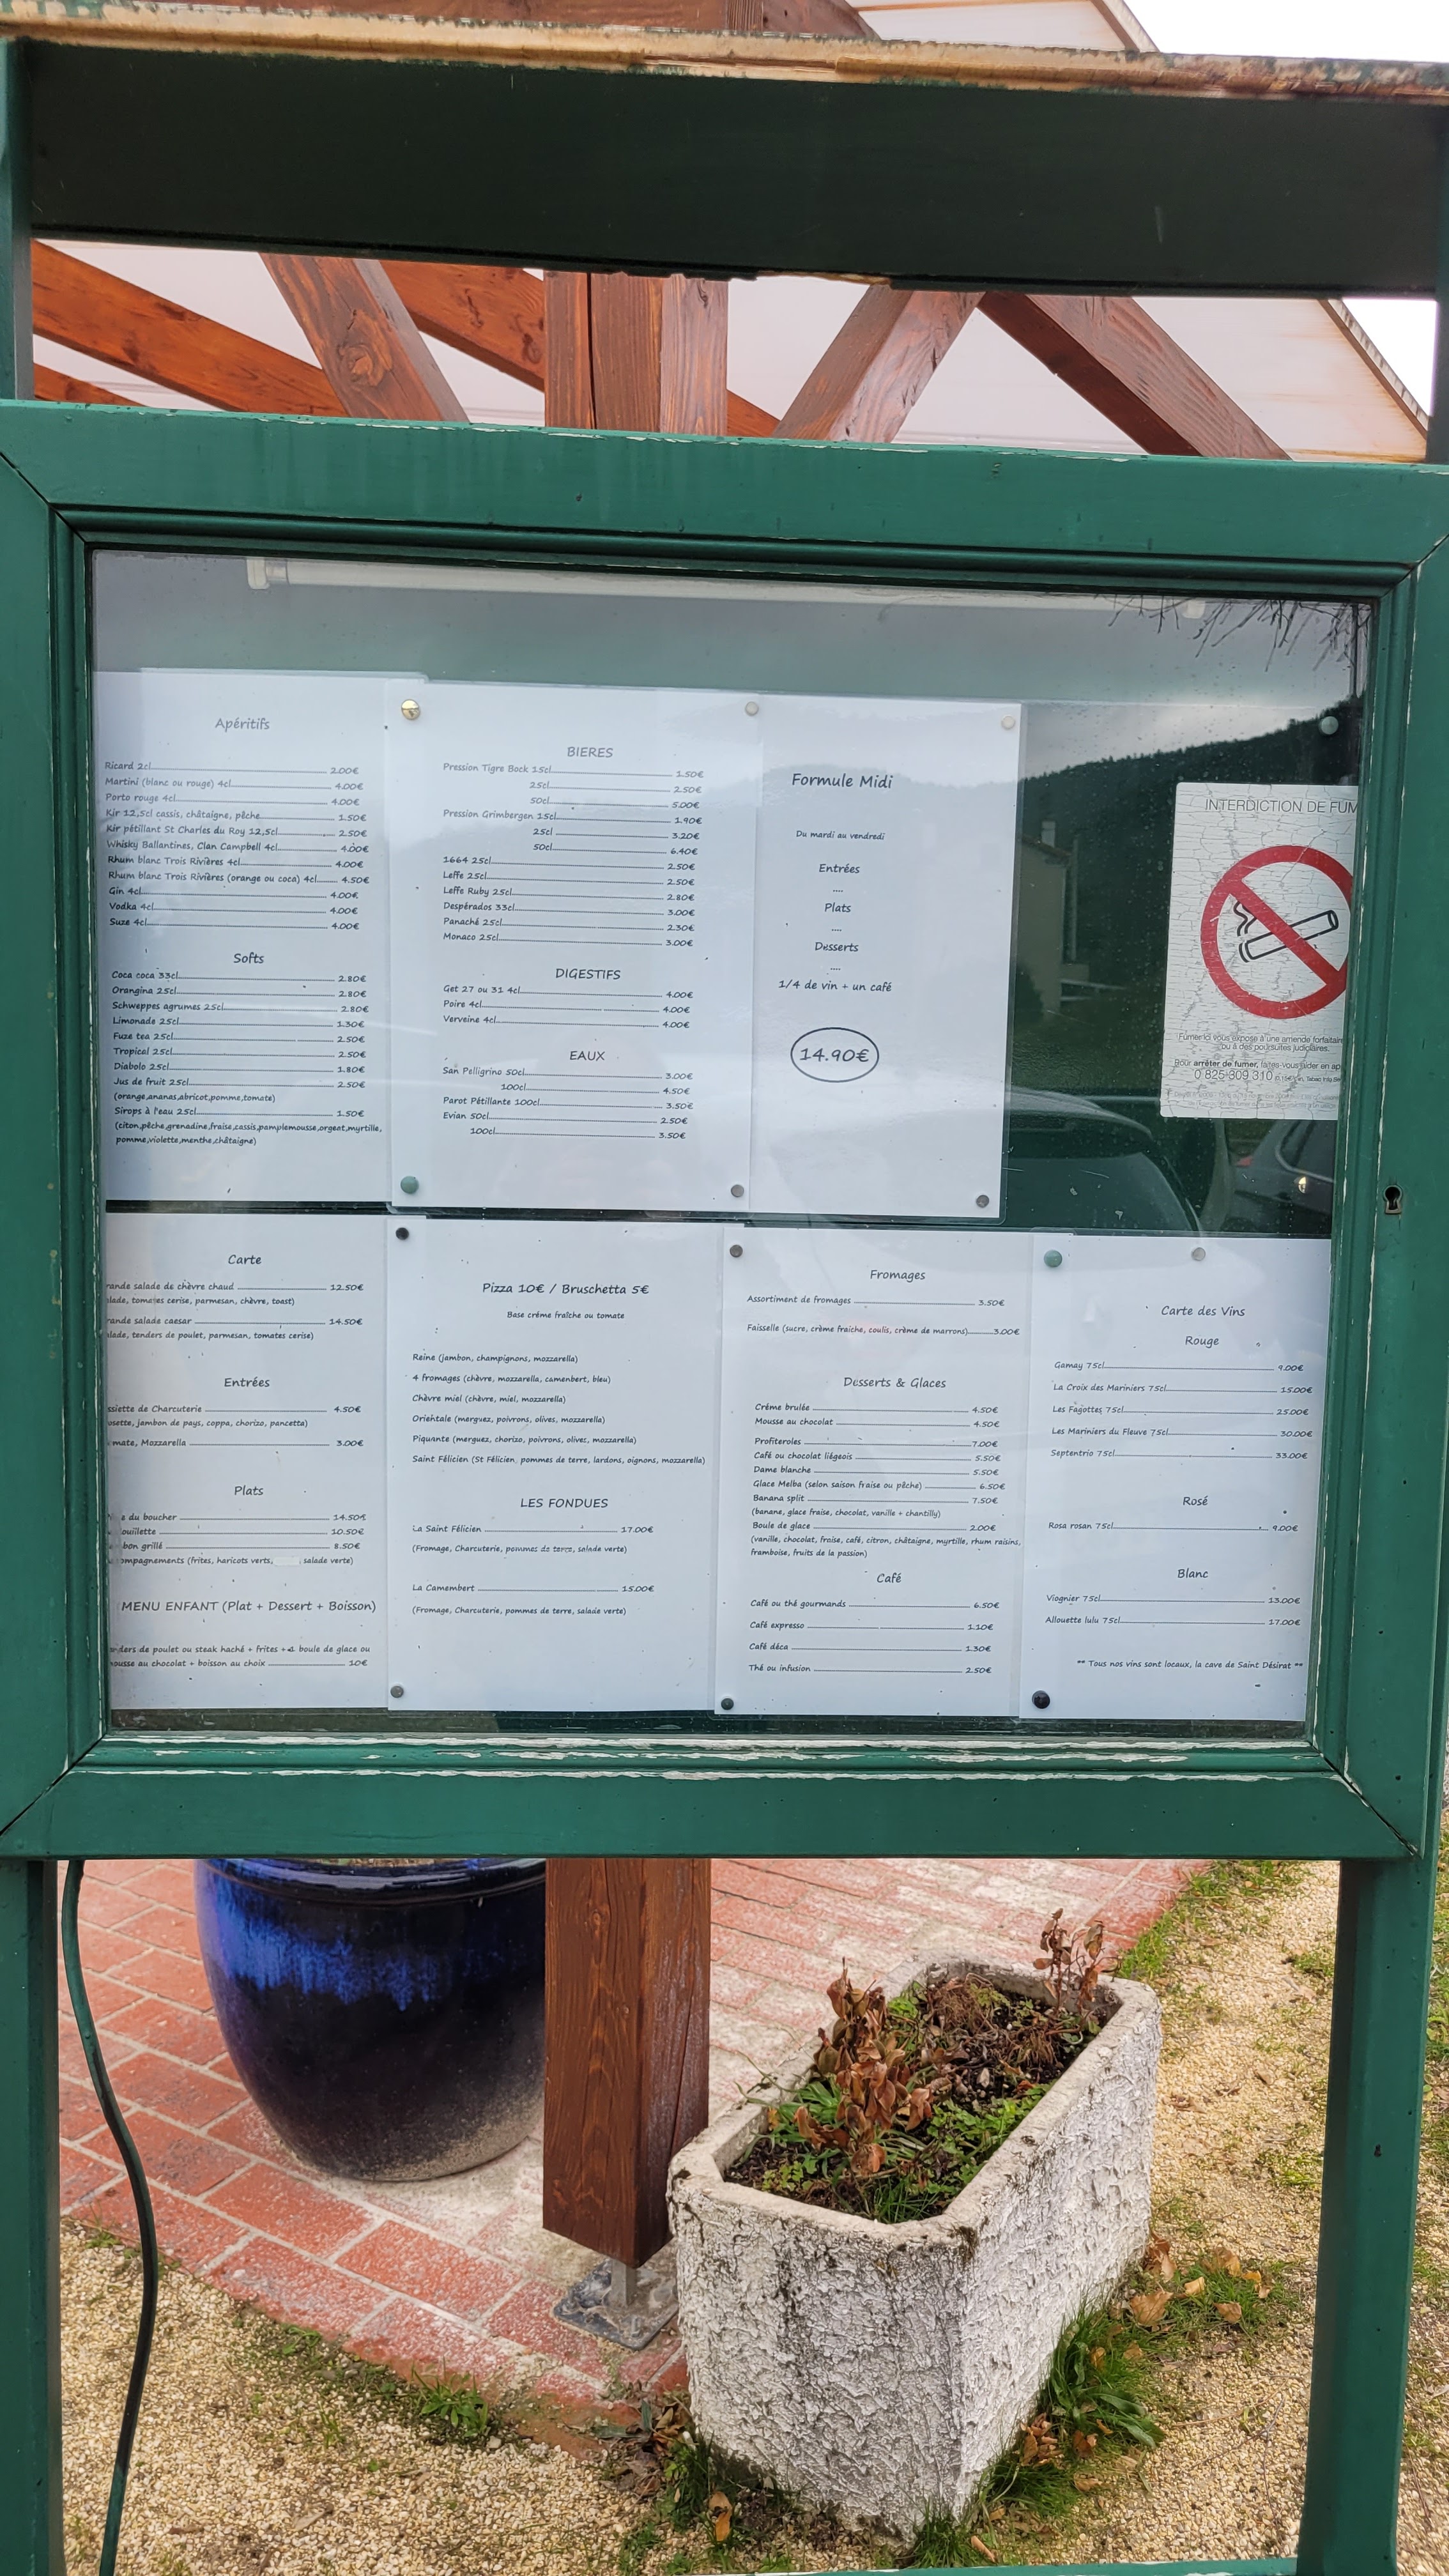 Apéritifs
Ricard 2cl 2.00€
Martini (blanc ou rouge) 4cl 4.00€
Porto rouge 4cl 4.00€
Kir 12,5cl cassis, châtaigne, pêche 1.50€
Kir pétillant St Charles du Roy 12,5cl 2.50€
Whisky Ballantines, Clan Campbell 4cl 4.00€
Rhum blanc Trois Rivières 4cl 4.00€
Rhum blanc Trois Rivières (orange ou coca) 4cl 4.50€
Gin 4cl 4.00€
Vodka 4cl 4.00€
Suze 4cl 4.00€
Softs
Coca coca 33cl 2.80€
Orangina 25cl 2.80€
Schweppes agrumes 25cl 2.80€
Limonade 25cl 1.30€
Fuze tea 25cl 2.50€
Tropical 25cl 2.50€
Diabolo 25cl 1.80€
Jus de fruit 25cl 2.50€
(orange,ananas,abricot,pomme,tomate)
Sirops à l'eau 25cl 1.50€
(citon,pêche,grenadine,fraise,cassis,pamplemousse,orgeat,myrtille,
pomme,violette,menthe,châtaigne)
BIERES
Pression Tigre Bock 15cl 1.50€
25cl 2.50€
50cl 5.00€
Pression Grimbergen 15cl 1.90€
25cl 3.20€
50cl 6.40€
1664 25cl 2.50€
Leffe 25cl 2.50€
Leffe Ruby 25cl 2.80€
Despérados 33cl 3.00€
Panaché 25cl 2.30€
Monaco 25cl 3.00€
DIGESTIFS
Get 27 ou 31 4cl 4.00€
Poire 4cl 4.00€
Verveine 4cl 4.00€
EAUX
San Pelligrino 50cl 3.00€
100cl 4.50€
Parot Pétillante 100cl 3.50€
Evian 50cl 2.50€
100cl 3.50€
Formule Midi
Du mardi au vendredi
Entrées
....
Plats
....
Desserts
....
1/4 de vin + un café
14.90€
INTERDICTION DE FUM
Fumer ici vous expose à une amende forfaitaire
ou à des poursuites judiciaires.
Pour arrêter de fumer, faites-vous aider en ap
0 825 309 310
Carte
rande salade de chèvre chaud 12.50€
lade, tomates cerise, parmesan, chèvre, toast)
rande salade caesar 14.50€
lade, tenders de poulet, parmesan, tomates cerise)
Entrées
ssiette de Charcuterie 4.50€
osette, jambon de pays, coppa, chorizo, pancetta)
mate, Mozzarella 3.00€
Plats
du boucher 14.50€
ouillette 10.50€
bon grillé 8.50€
ompagnements (frites, haricots verts, salade verte)
MENU ENFANT (Plat + Dessert + Boisson)
nders de poulet ou steak haché + frites + 1 boule de glace ou
ousse au chocolat + boisson au choix 10€
Pizza 10€ / Bruschetta 5€
Base crème fraîche ou tomate
Reine (jambon, champignons, mozzarella)
4 fromages (chèvre, mozzarella, camenbert, bleu)
Chèvre miel (chèvre, miel, mozzarella)
Orientale (merguez, poivrons, olives, mozzarella)
Piquante (merguez, chorizo, poivrons, olives, mozzarella)
Saint Félicien (St Félicien, pommes de terre, lardons, oignons, mozzarella)
LES FONDUES
La Saint Félicien 17.00€
(Fromage, Charcuterie, pommes de terre, salade verte)
La Camembert 15.00€
(Fromage, Charcuterie, pommes de terre, salade verte)
Fromages
Assortiment de fromages 3.50€
Faisselle (sucre, crème fraiche, coulis, crème de marrons) 3.00€
Desserts & Glaces
Crème brulée 4.50€
Mousse au chocolat 4.50€
Profiteroles 7.00€
Café ou chocolat liégeois 5.50€
Dame blanche 5.50€
Glace Melba (selon saison fraise ou pêche) 6.50€
Banana split 7.50€
(banane, glace fraise, chocolat, vanille + chantilly)
Boule de glace 2.00€
(vanille, chocolat, fraise, café, citron, châtaigne, myrtille, rhum raisins,
framboise, fruits de la passion)
Café
Café ou thé gourmands 6.50€
Café expresso 1.10€
Café déca 1.30€
Thé ou infusion 2.50€
Carte des Vins
Rouge
Gamay 75cl 9.00€
La Croix des Mariniers 75cl 15.00€
Les Fagottes 75cl 25.00€
Les Mariniers du Fleuve 75cl 30.00€
Septentrio 75cl 33.00€
Rosé
Rosa rosan 75cl 9.00€
Blanc
Viognier 75cl 13.00€
Allouette lulu 75cl 17.00€
** Tous nos vins sont locaux, la cave de Saint Désirat **